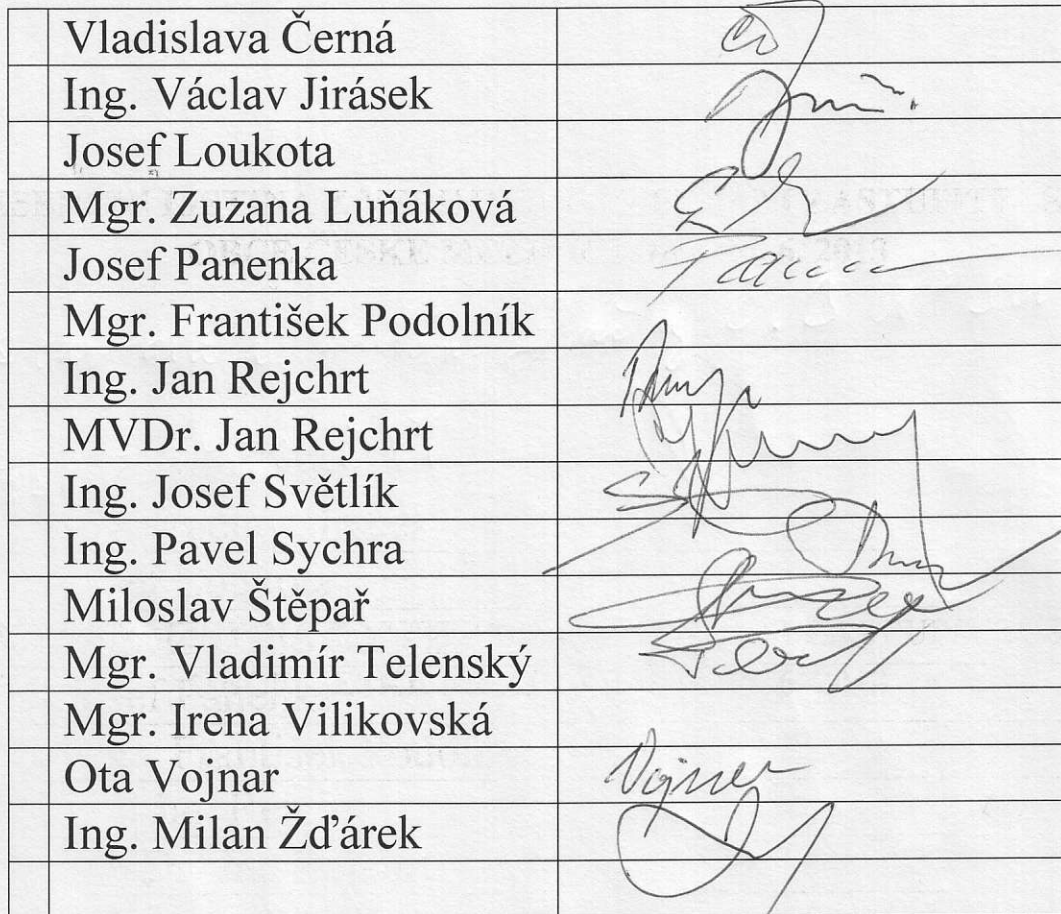 Vladislava Černá
Ing. Václav Jirásek
Josef Loukota
Mgr. Zuzana Luňáková
Josef Panenka
Mgr. František Podolník
Ing. Jan Rejchrt
MVDr. Jan Rejchrt
Ing. Josef Světlík
Ing. Pavel Sychra
Miloslav Štěpař
Mgr. Vladimír Telenský
Mgr. Irena Vilikovská
Ota Vojnar
Ing. Milan Žďárek